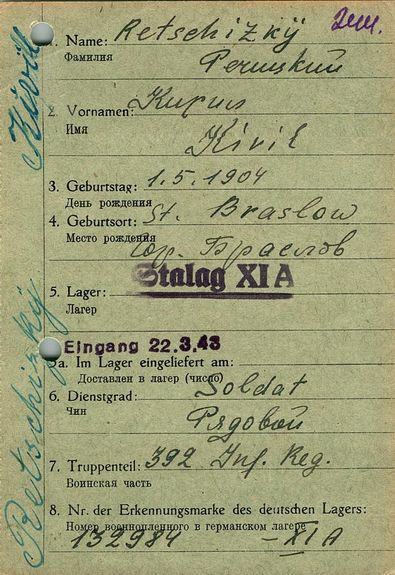 1. Name: Retschizkÿ
Фамилия Речицкий
2. Vornamen: Кирил
Имя Kiril
3. Geburtstag: 1.5.1904
День рождения
4. Geburtsort: St. Braslow
Место рождения гор. Браслов
Stalag XI A
5. Lager:
Лагер
Eingang 22.3.43
5a. Im Lager eingeliefert am:
Доставлен в лагер (число)
6. Dienstgrad: Soldat
Чин Рядовой
7. Truppenteil: 392 Inf. Reg.
Воинская часть
8. Nr. der Erkennungsmarke des deutschen Lagers:
Номер военнопленного в германском лагере
132984 – XI A
Retschizkÿ Kiril